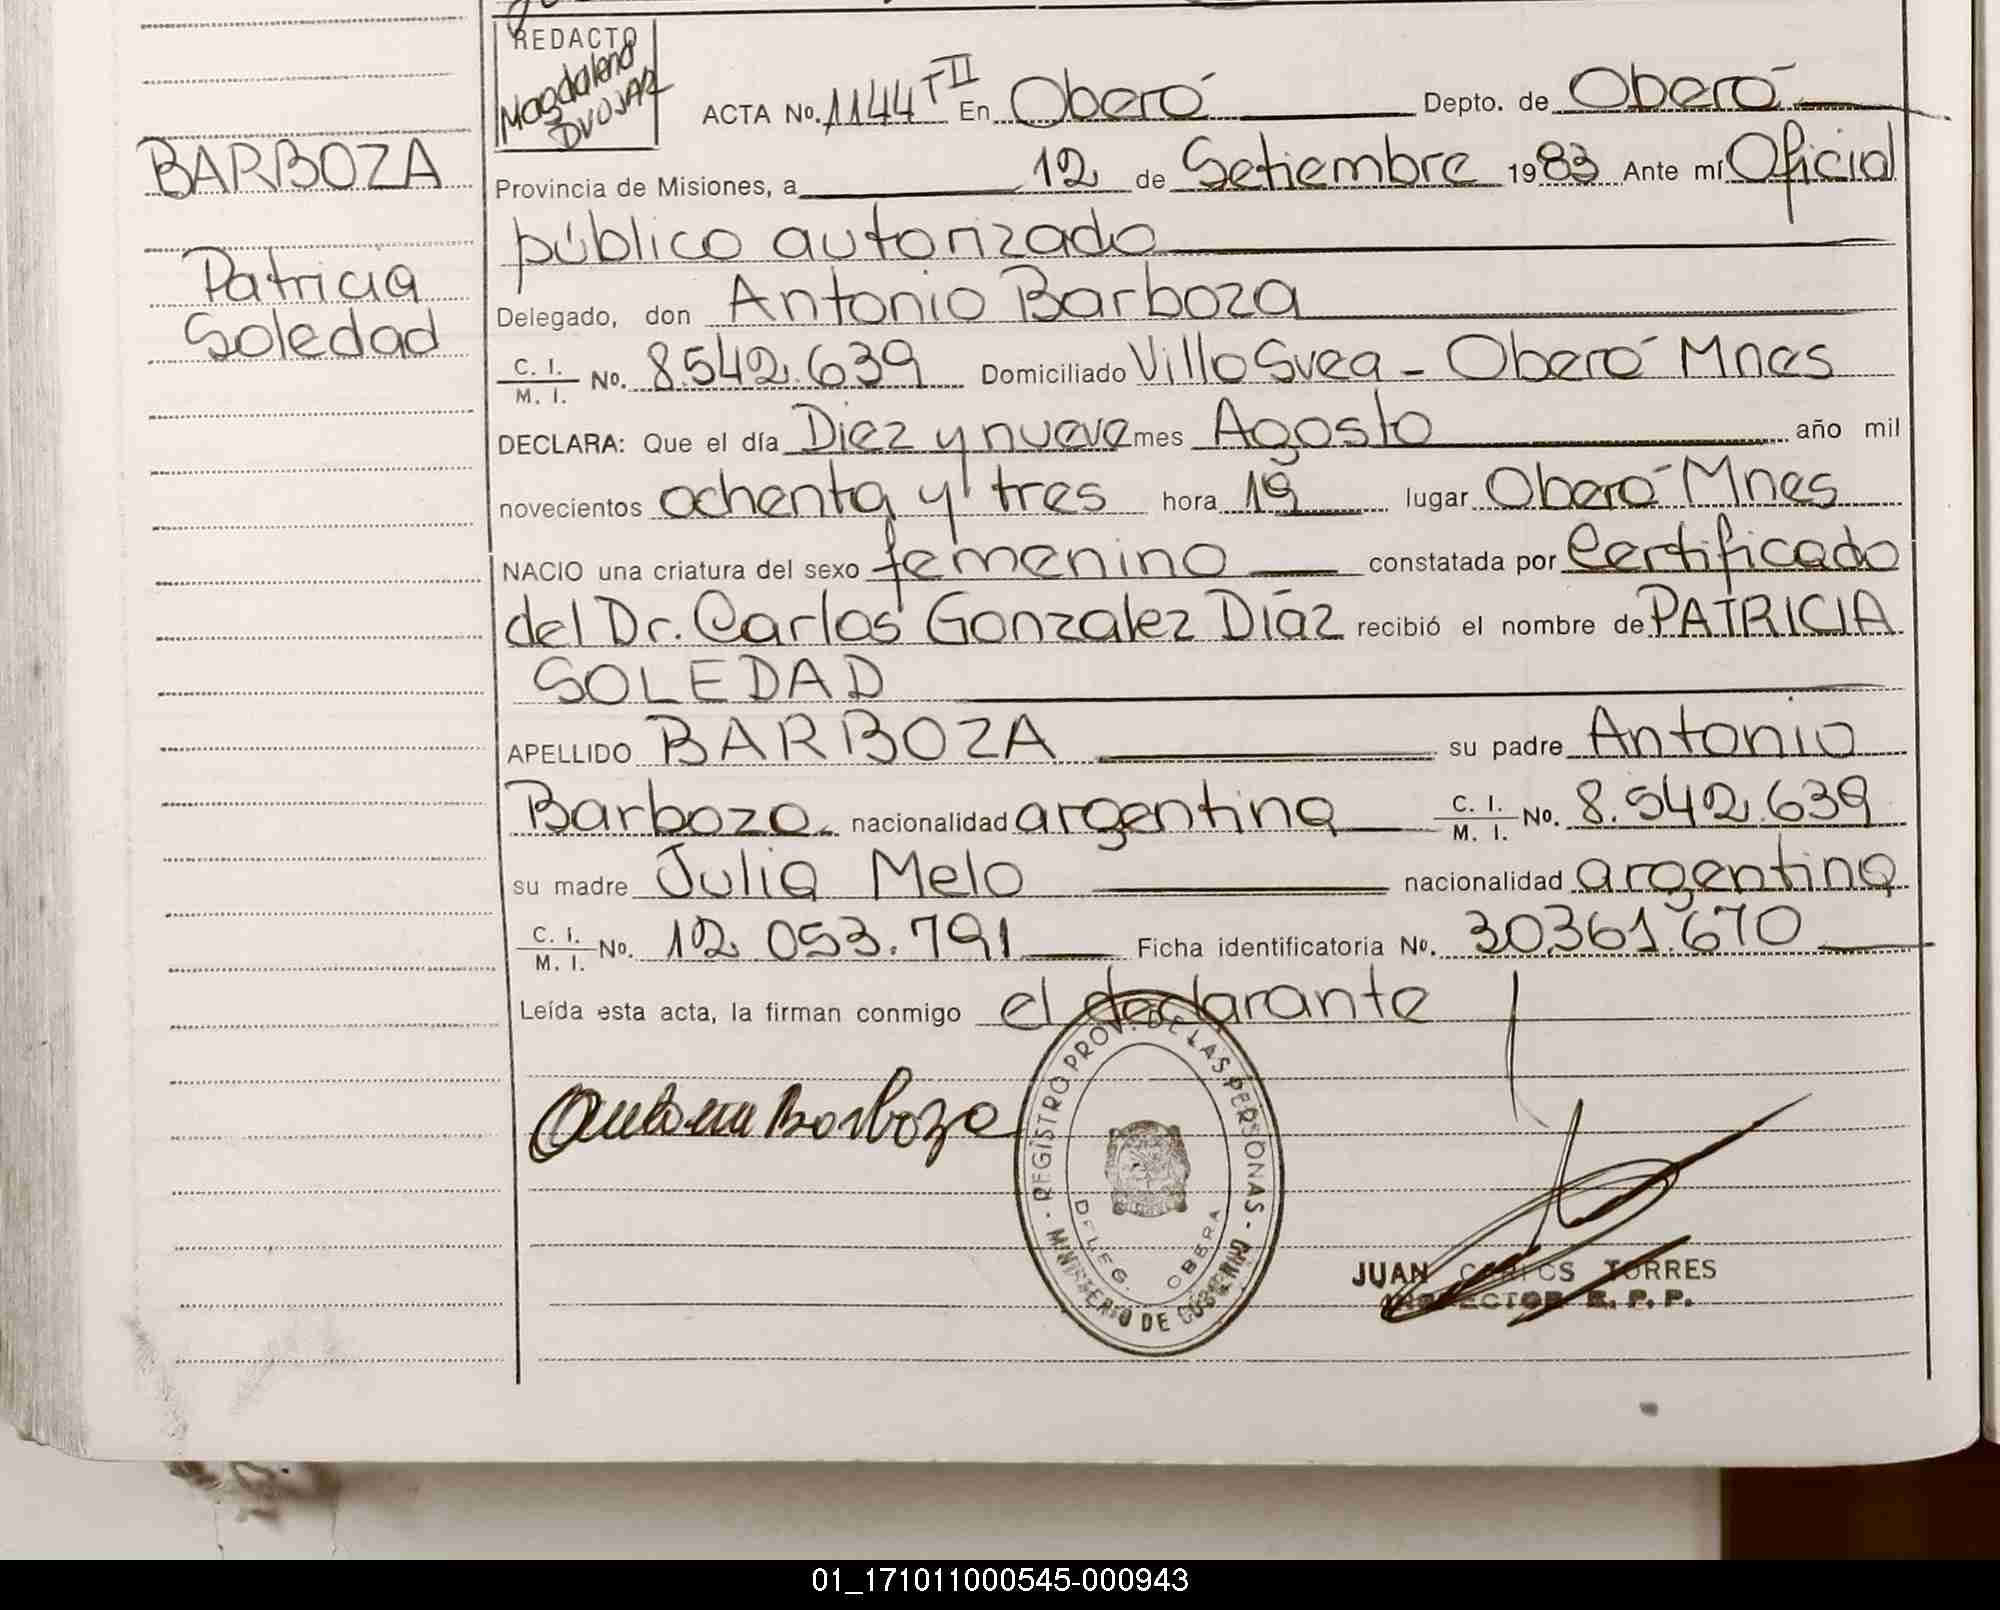 REDACTO
Magdalena
DVOJAK
ACTA No. 1144 T II En Oberá Depto. de Oberá
BARBOZA
Provincia de Misiones, a 12 de Setiembre 1983 Ante mí Oficial
público autorizado
Patricia
Soledad
Delegado, don Antonio Barboza
C. I.
M. I. No. 8.542.639 Domiciliado Villa Svea - Oberá Mnes
DECLARA: Que el día Diez y nueve mes Agosto año mil
novecientos ochenta y tres hora 19 lugar Oberá Mnes
NACIO una criatura del sexo femenino constatada por Certificado
del Dr. Carlos Gonzalez Díaz recibió el nombre de PATRICIA
SOLEDAD
APELLIDO BARBOZA su padre Antonio
Barboza nacionalidad argentina C. I. M. I. No. 8.542.639
su madre Julia Melo nacionalidad argentina
C. I. M. I. No. 12.053.791 Ficha identificatoria No. 30.361.670
Leída esta acta, la firman conmigo el declarante
REGISTRO PROV. DE LAS PERSONAS - MINISTERIO DE GOBIERNO
DELEG. OBERA
Barboza
JUAN CARLOS TORRES
INSPECTOR R. P. P.
01_171011000545-000943